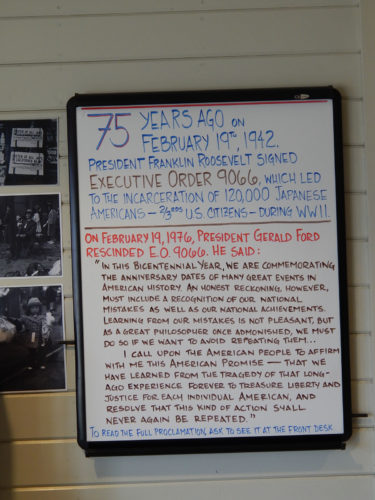 75 YEARS AGO ON
FEBRUARY 19TH, 1942.
PRESIDENT FRANKLIN ROOSEVELT SIGNED
EXECUTIVE ORDER 9066, WHICH LED
TO THE INCARCERATION OF 120,000 JAPANESE
AMERICANS – 2/3RDS U.S. CITIZENS – DURING WWII.
ON FEBRUARY 19, 1976, PRESIDENT GERALD FORD
RESCINDED E.O. 9066. HE SAID:
"IN THIS BICENTENNIAL YEAR, WE ARE COMMEMORATING
THE ANNIVERSARY DATES OF MANY GREAT EVENTS IN
AMERICAN HISTORY. AN HONEST RECKONING, HOWEVER,
MUST INCLUDE A RECOGNITION OF OUR NATIONAL
MISTAKES AS WELL AS OUR NATIONAL ACHIEVEMENTS.
LEARNING FROM OUR MISTAKES IS NOT PLEASANT, BUT
AS A GREAT PHILOSOPHER ONCE ADMONISHED, WE MUST
DO SO IF WE WANT TO AVOID REPEATING THEM...
I CALL UPON THE AMERICAN PEOPLE TO AFFIRM
WITH ME THIS AMERICAN PROMISE – THAT WE
HAVE LEARNED FROM THE TRAGEDY OF THAT LONG-
AGO EXPERIENCE FOREVER TO TREASURE LIBERTY AND
JUSTICE FOR EACH INDIVIDUAL AMERICAN, AND
RESOLVE THAT THIS KIND OF ACTION SHALL
NEVER AGAIN BE REPEATED."
TO READ THE FULL PROCLAMATION, ASK TO SEE IT AT THE FRONT DESK